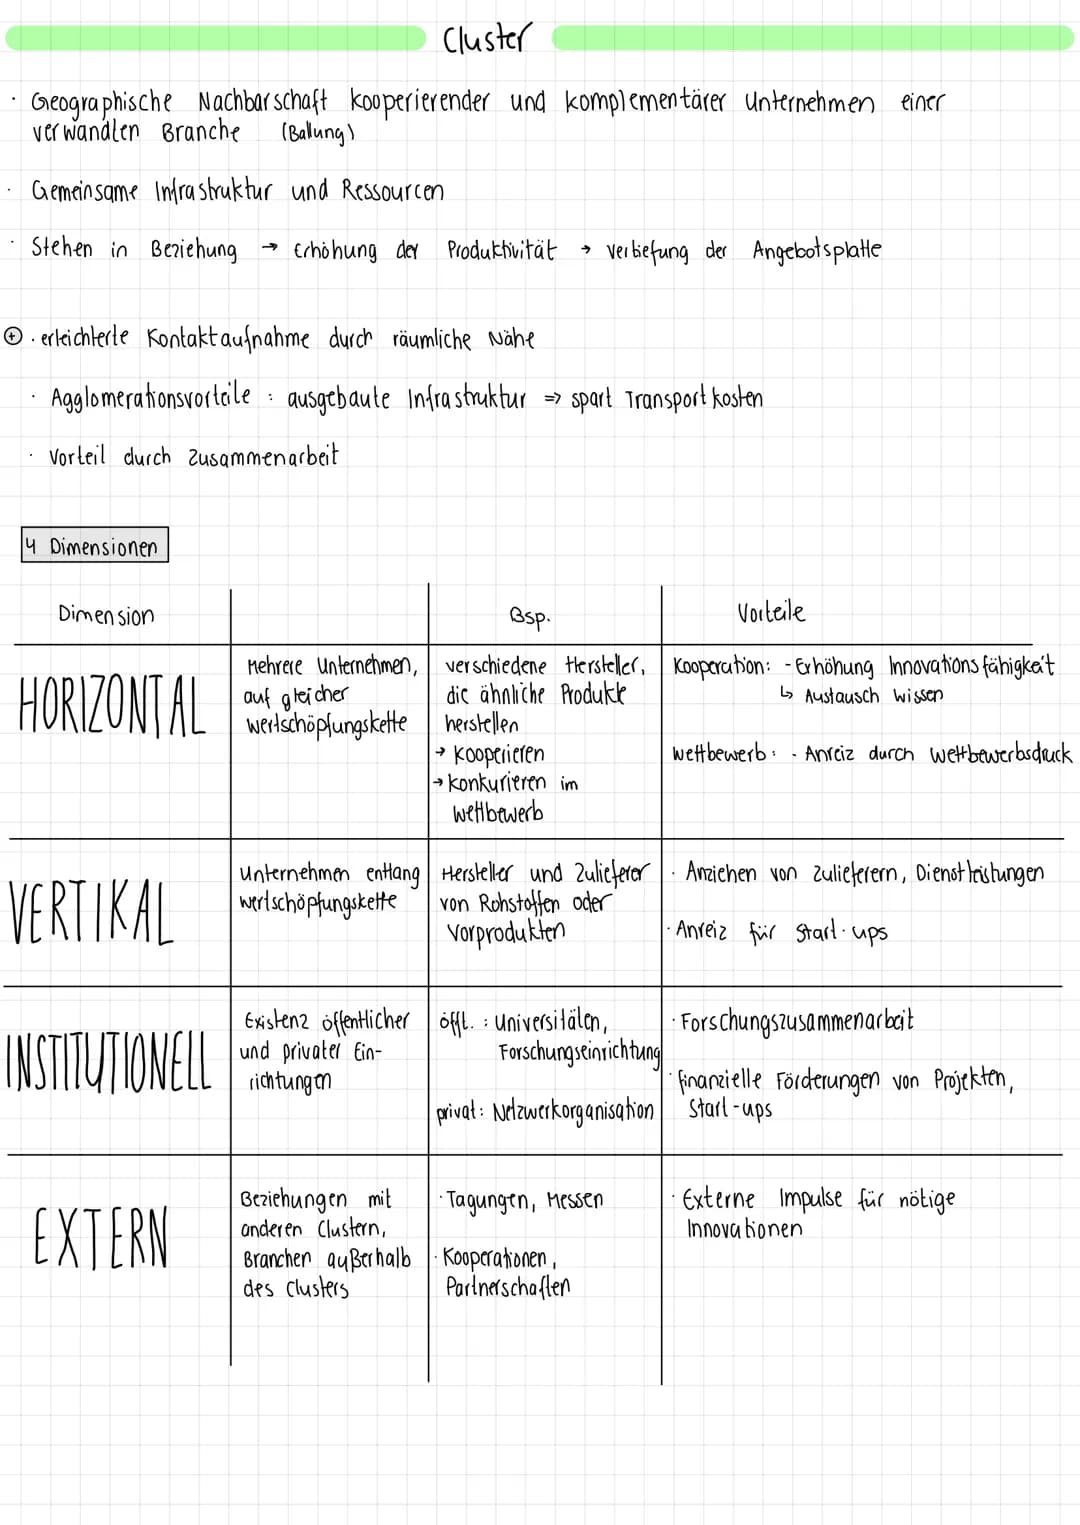 Cluster
· Geographische Nachbarschaft kooperierender und komplementärer Unternehmen einer
verwandten Branche (Ballung)
· Gemeinsame Infrastruktur und Ressourcen
· Stehen in Beziehung → Erhöhung der Produktivität → Vertiefung der Angebotsplatte
⊕ · erleichterte Kontaktaufnahme durch räumliche Nähe
· Agglomerationsvorteile : ausgebaute Infrastruktur => spart Transportkosten
· Vorteil durch Zusammenarbeit
4 Dimensionen
Dimension
Bsp.
Vorteile
HORIZONTAL
Mehrere Unternehmen,
auf gleicher
Wertschöpfungskette
verschiedene Hersteller,
die ähnliche Produkte
herstellen
→ kooperieren
→ konkurieren im
Wettbewerb
Kooperation: - Erhöhung Innovationsfähigkeit
↳ Austausch Wissen
Wettbewerb: · Anreiz durch Wettbewerbsdruck
VERTIKAL
Unternehmen entlang
Wertschöpfungskette
Hersteller und Zulieferer
von Rohstoffen oder
Vorprodukten
· Anziehen von Zulieferern, Dienstleistungen
· Anreiz für Start-ups
INSTITUTIONELL
Existenz öffentlicher
und privater Ein-
richtungen
öfftl. : Universitäten,
Forschungseinrichtung
privat: Netzwerkorganisation
· Forschungszusammenarbeit
· finanzielle Förderungen von Projekten,
Start-ups
EXTERN
Beziehungen mit
anderen Clustern,
Branchen außerhalb
des Clusters
· Tagungen, Messen
· Kooperationen,
Partnerschaften
· Externe Impulse für nötige
Innovationen